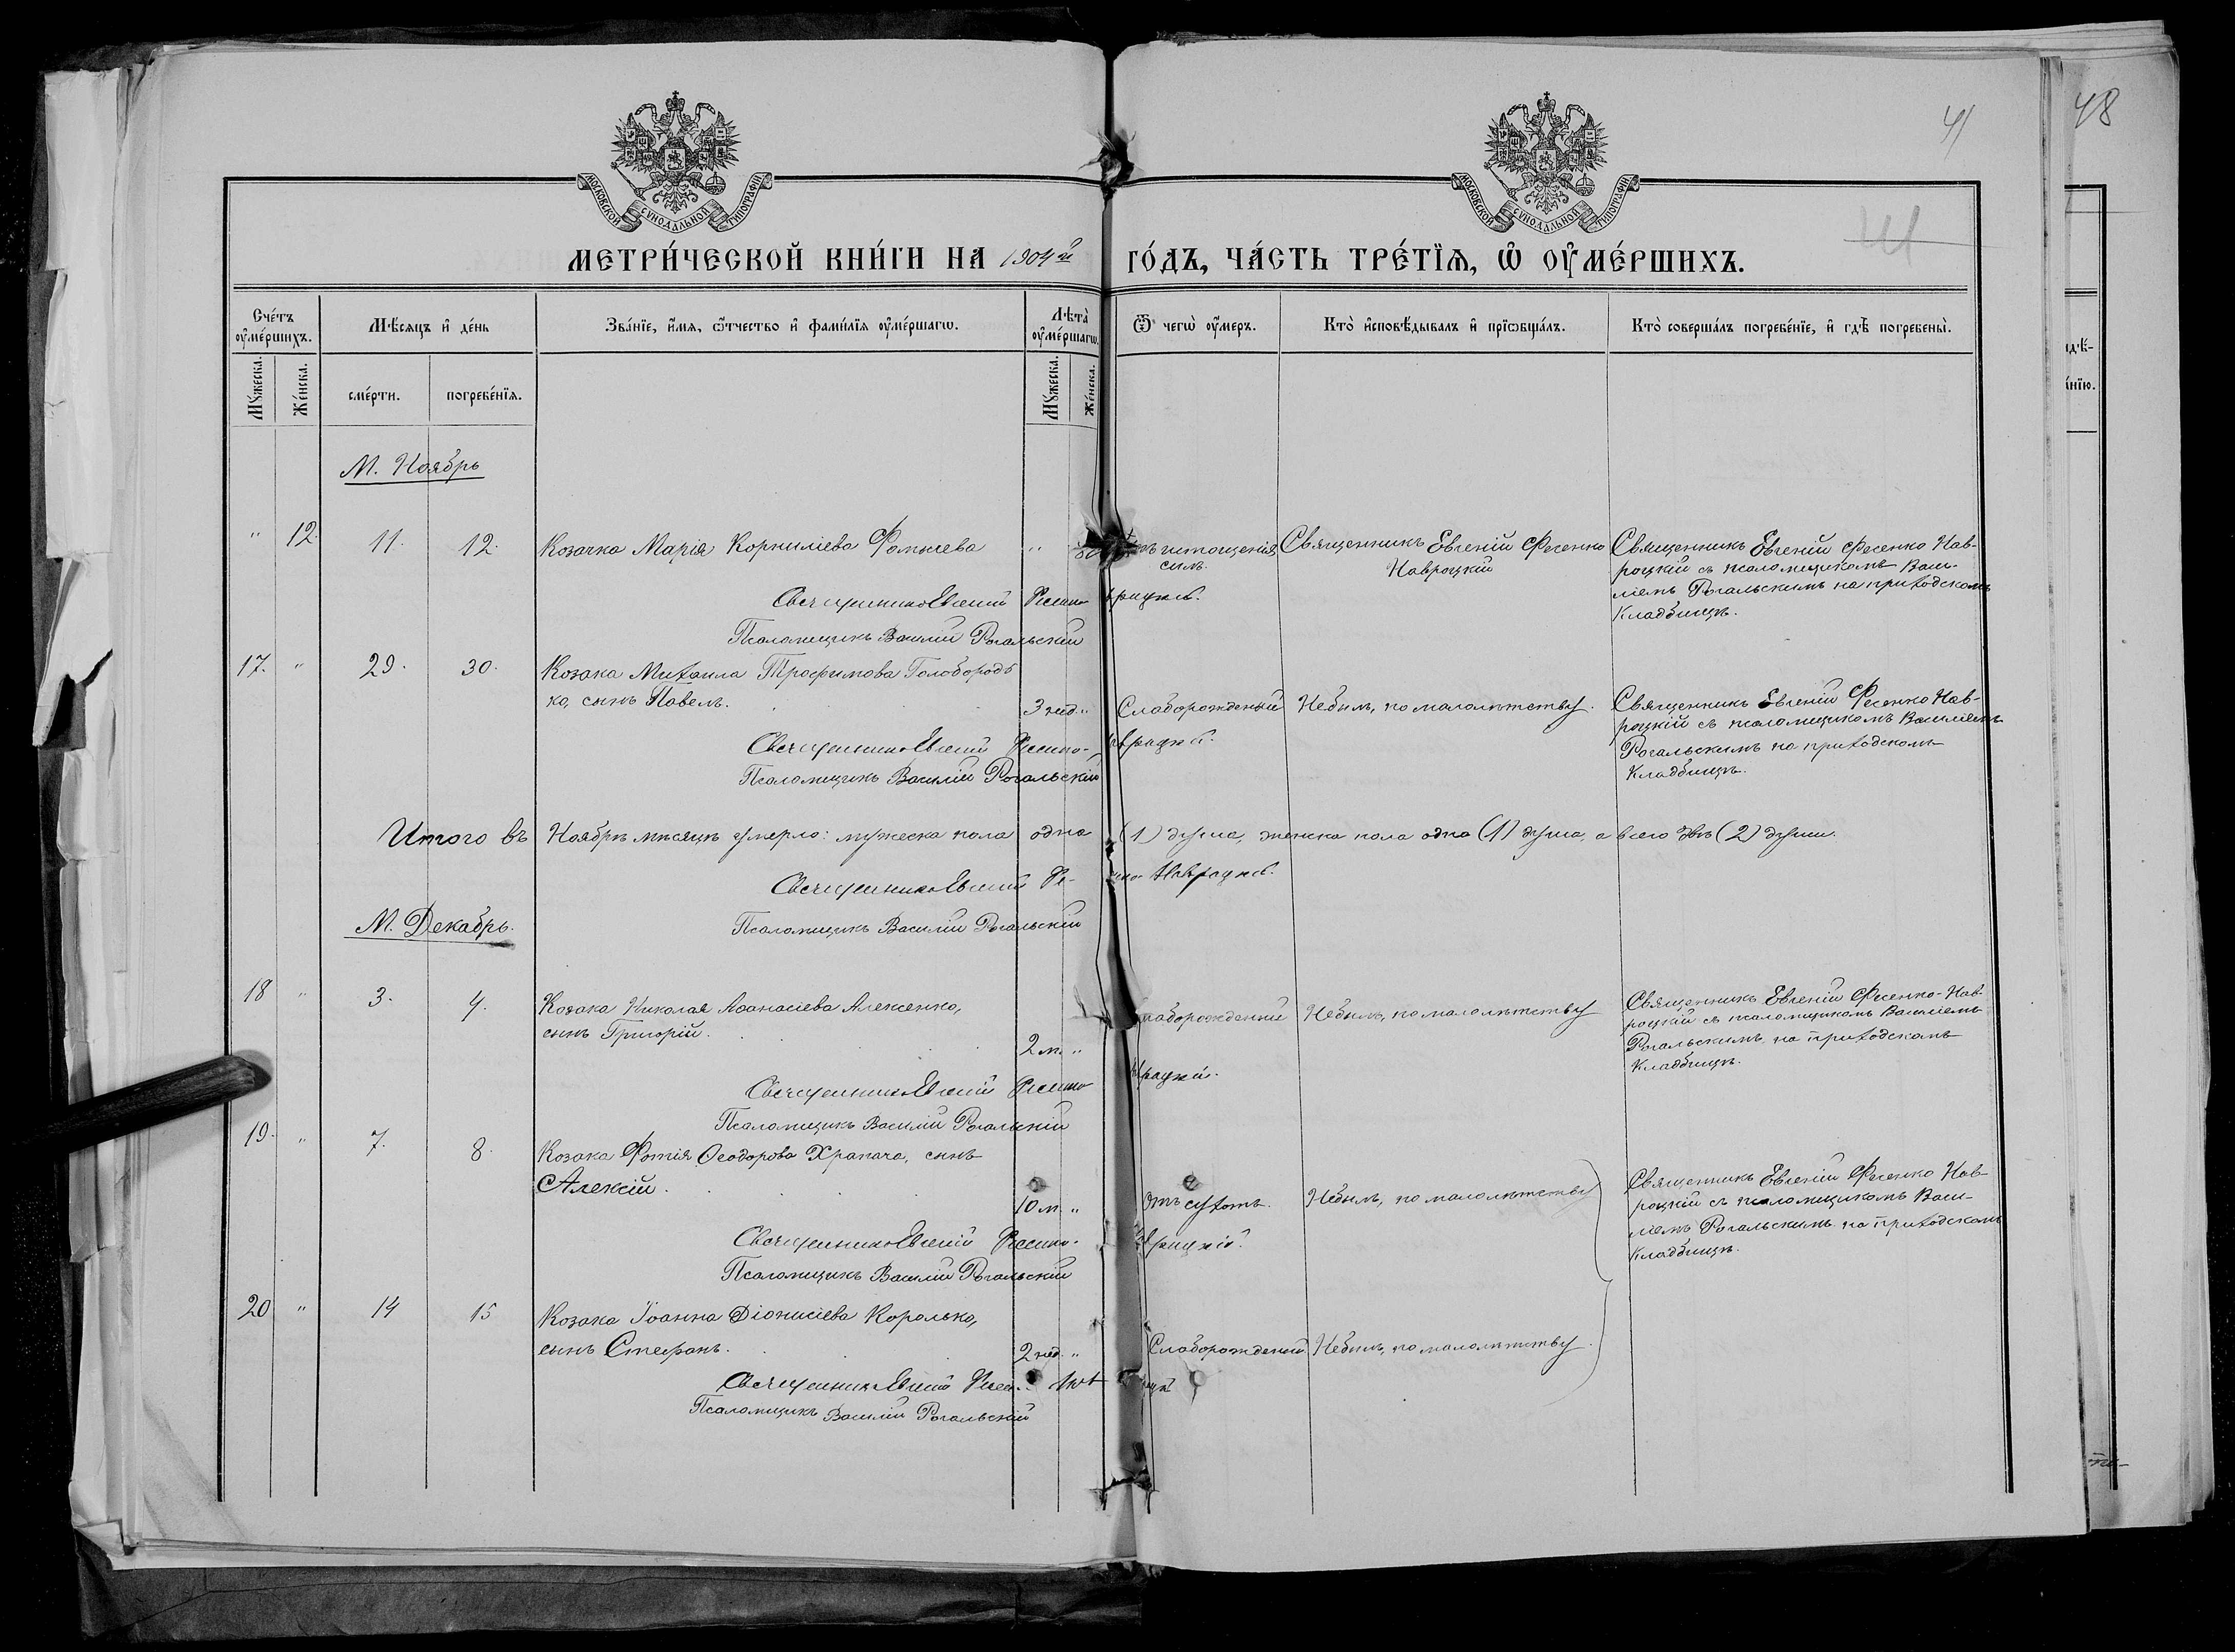 41
48
МОСКОВСКОЙ СѴНОДАЛЬНОЙ ТИПОГРАФІИ
МОСКОВСКОЙ СѴНОДАЛЬНОЙ ТИПОГРАФІИ
МЕТРИ́ЧЕСКОЙ КНИ́ГИ НА 1904й ГО́ДЪ, ЧА́СТЬ ТРЕ́ТЇѦ, Ѽ ОУ҆МЕ́РШИХЪ.
Сче́тъ оу҆ме́ршихъ.
Мѣ́сяцъ и҆ де́нь
Зва́нїе, и҆́мя, ѻ҆́тчество и҆ фами́лїя оу҆ме́ршагѡ.
Лѣ́та оу҆ме́ршагѡ.
Ѿ чегѡ̀ оу҆́меръ.
Кто̀ и҆сповѣ́дывалъ и҆ прїѡбща́лъ.
Кто̀ соверша́лъ погребе́нїе, и҆ гдѣ̀ погребены̀.
Мꙋ́жеска. Же́нска. сме́рти. погребе́нїя. Мꙋ́жеска. Же́нска.
М. Ноябрь
" 12. 11. 12. Козачка Марія Корниліева Фомычева "
истощенія силъ.
Священникъ Евгеній Фесенко Навроцкій
Священникъ Евгеній Фесенко Нав-
роцкій съ псаломщикомъ Васи-
ліемъ Рогальскимъ на приходскомъ
Кладбищѣ.
Священникъ Евгеній Фесенко
Псаломщикъ Василій Рогальскій
17. " 29. 30. Козака Михаила Трофимова Голобородь
ко, сынъ Павелъ. 3 нед. " Слаборожденый Небылъ, по малолѣтству.
Священникъ Евгеній Фесенко Нав-
роцкій съ псаломщикомъ Василіемъ
Рогальскимъ на приходскомъ
Кладбищѣ.
Священникъ Евгеній Фесенко-Навроцкій.
Псаломщикъ Василій Рогальскій
Итого въ Ноябрѣ мѣсяцѣ умерло: мужеска пола одна (1) душа, женска пола одна (1) душа, а всего двѣ (2) души.
Священникъ Евгеній Фесенко Навроцкій.
Псаломщикъ Василій Рогальскій
М. Декабрь.
18 " 3. 4. Козака Николая Аѳанасіева Алексенко,
сынъ Григорій. 2 м. " Слаборожденный Небылъ, по малолѣтству
Священникъ Евгеній Фесенко-Нав-
роцкій съ псаломщикомъ Василіемъ
Рогальскимъ, на приходскомъ
Кладбищѣ.
Священникъ Евгеній Фесенко
Псаломщикъ Василій Рогальскій
19. " 7. 8. Козака Фотія Ѳеодорова Храпача, сынъ
Алексій. 10 м. " Отъ сухотъ. Небылъ, по малолѣтству
Священникъ Евгеній Фесенко Нав-
роцкій съ псаломщикомъ Васи-
ліемъ Рогальскимъ на приходскомъ
Кладбищѣ.
Священникъ Евгеній Фесенко-Навроцкій.
Псаломщикъ Василій Рогальскій
20 " 14 15 Козака Іоанна Діонисіева Королько,
сынъ Стефанъ. 2 нед. " Слаборожденый Небылъ, по малолѣтству.
Священникъ Евгеній
Псаломщикъ Василій Рогальскій